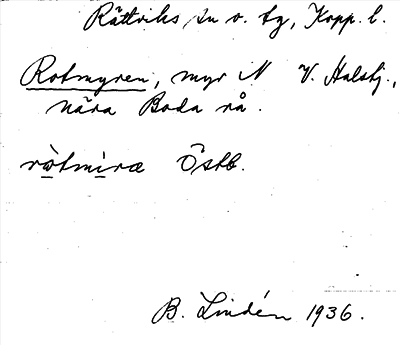 Rättviks sn o. tg, Kopp. l.
Rotmyren, myr N V. Halsbj.,
nära Boda rå.
Östb.
B. Lindén 1936.